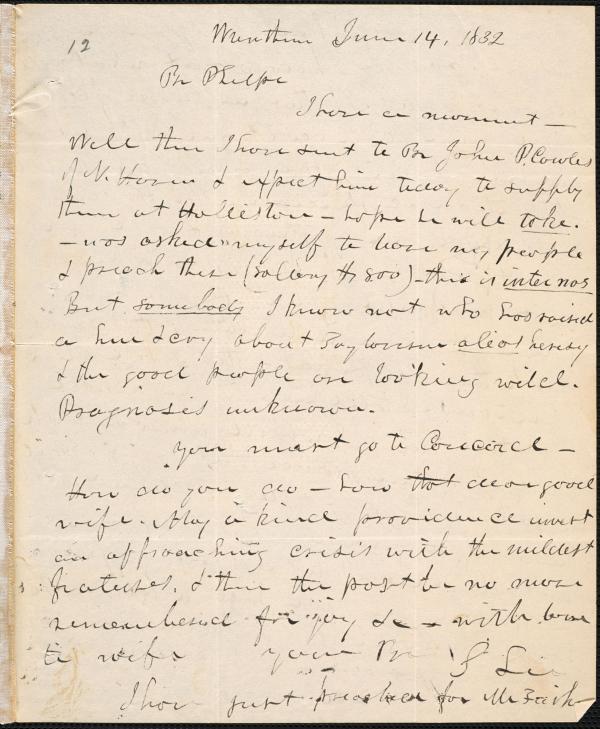 12
Wrentham June 14, 1832
Br Phelps
I have a moment —
Well then I have sent to Br John P. Cowles
of N. Haven & expect him today to supply
them at Holliston — hope he will take.
— was asked myself to leave my people
& preach there (sallery $800) — this is inter nos
But somebody I know not who has raised
a hue & cry about Taylorism alias heresy
& the good people are looking wild.
Prognosis unknown.
You must go to Concord —
How do you do — how that dear good
wife. May a kind providence invest
an approaching crisis with the mildest
features. & then the past be no more
remembered for joy &c — with love
to wife your Br
I have just preached for Mr Fisk